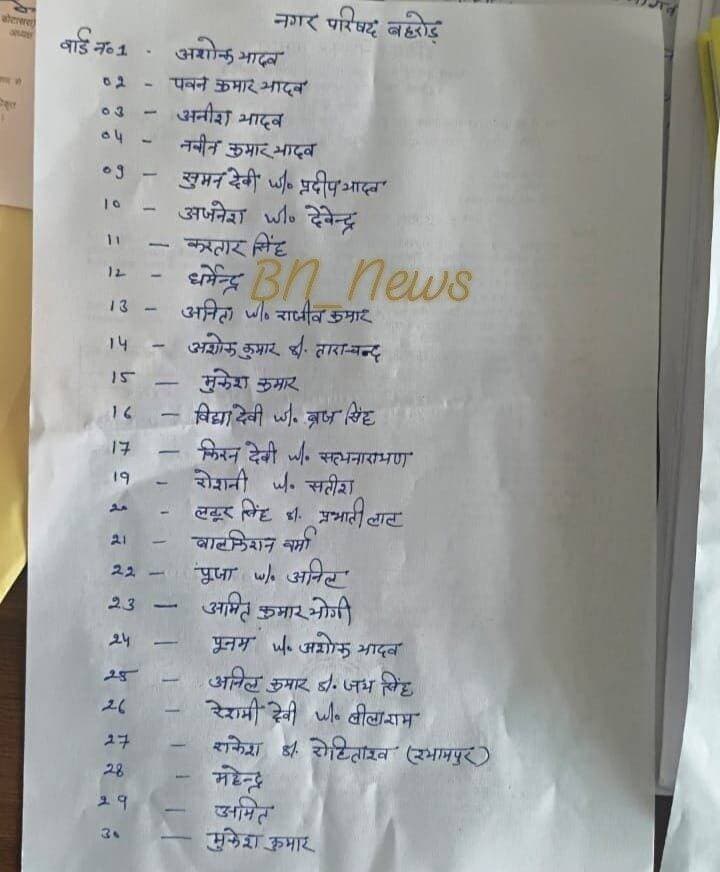 नगर परिषद बहरोड़
वार्ड नं०1 - अशोक यादव
02 - पवन कुमार यादव
03 - अनीश यादव
04 - नवीन कुमार यादव
09 - सुमन देवी w/o प्रदीप यादव
10 - अजनेश w/o देवेन्द्र
11 - करतार सिंह
12 - धर्मेन्द्र
BN_News
13 - अनिता w/o राजीव कुमार
14 - अशोक कुमार s/. ताराचन्द
15 - मुकेश कुमार
16 - विद्या देवी w/o ब्रज सिंह
17 - किरन देवी w/o सत्यनारायण
19 - रोशनी w/o सतीश
20 - लटूर सिंह s/. प्रभाती लाल
21 - बालकिशन वर्मा
22 - पूजा w/o अनिल
23 - अमित कुमार योगी
24 - पूनम w/o अशोक यादव
25 - अनिल कुमार s/. जय सिंह
26 - रेशमी देवी w/o लीलाराम
27 - राकेश s/. रोहिताश्व (श्यामपुर)
28 - महेन्द्र
29 - अमित
30 - मुकेश कुमार